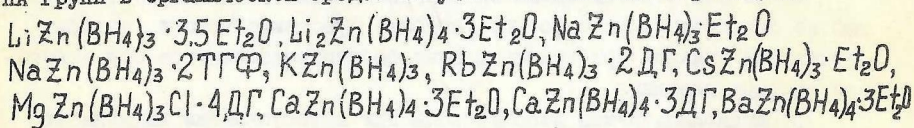 LiZn(BH₄)₃·3.5Et₂O, Li₂Zn(BH₄)₄·3Et₂O, NaZn(BH₄)₃·Et₂O
NaZn(BH₄)₃·2ТГФ, KZn(BH₄)₃, RbZn(BH₄)₃·2ДГ, CsZn(BH₄)₃·Et₂O,
MgZn(BH₄)₃Cl·4ДГ, CaZn(BH₄)₄·3Et₂O, CaZn(BH₄)₄·3ДГ, BaZn(BH₄)₄·3Et₂O